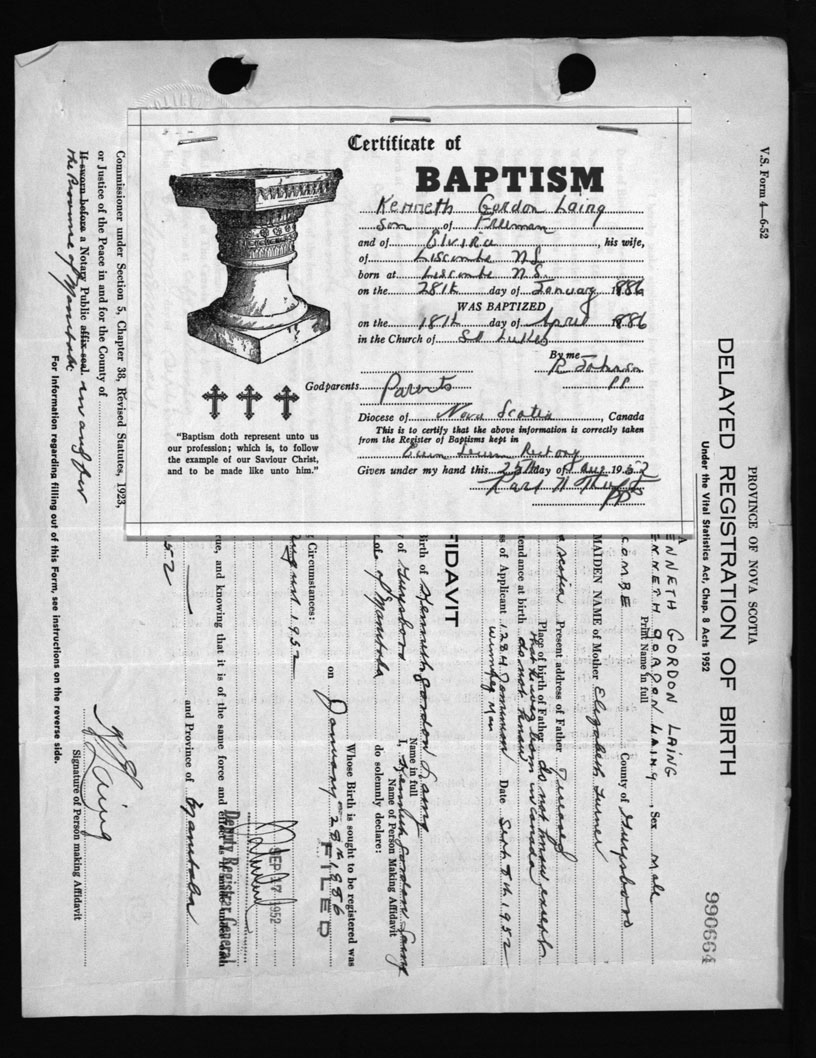 Certificate of
BAPTISM
Kenneth Gordon Laing
Son of Freeman
and of Elvira, his wife,
of Liscombe N.S.
born at Liscombe N.S.
on the 28th day of January 1886
WAS BAPTIZED
on the 18th day of April 1886
in the Church of St Lukes
By me
R Johnson
PP
Godparents Parents
Diocese of Nova Scotia, Canada
This is to certify that the above information is correctly taken
from the Register of Baptisms kept in
Rectory
Given under my hand this 25th day of Aug 1952
Karl H
PP
"Baptism doth represent unto us
our profession; which is, to follow
the example of our Saviour Christ,
and to be made like unto him."
V.S. Form 4—6-52
PROVINCE OF NOVA SCOTIA
DELAYED REGISTRATION OF BIRTH
Under the Vital Statistics Act, Chap. 8 Acts 1952
990664
ENNETH GORDON LAING
Print Name in full
ENNETH GORDON LAING, Sex Male
COMBE County of Guysboro
MAIDEN NAME of Mother Elizabeth Turner
a scotia Present address of Father Deceased
Place of birth of Father do not know except
that he was born in Canada
tendance at birth do not know
s of Applicant 1284 Dominion Date Sept 5th 1952
Winnipeg Man
FIDAVIT
Birth of Kenneth Gordon Laing
Name in full
of Guysboro I, Kenneth Gordon Laing
Name of Person Making Affidavit
of Manitoba do solemnly declare:
Whose Birth is sought to be registered was
on January 28th 1886
FILED
Circumstances:
ugust 1952
SEP 17 1952
Deputy Registrar General
ue, and knowing that it is of the same force and effect as if made under oath
and Province of Manitoba
52
K G Laing
Signature of Person making Affidavit
Commissioner under Section 5, Chapter 38, Revised Statutes, 1923,
or Justice of the Peace in and for the County of
If sworn before a Notary Public affix seal in and for
the Province of Manitoba
For Information regarding filling out of this Form, see instructions on the reverse side.